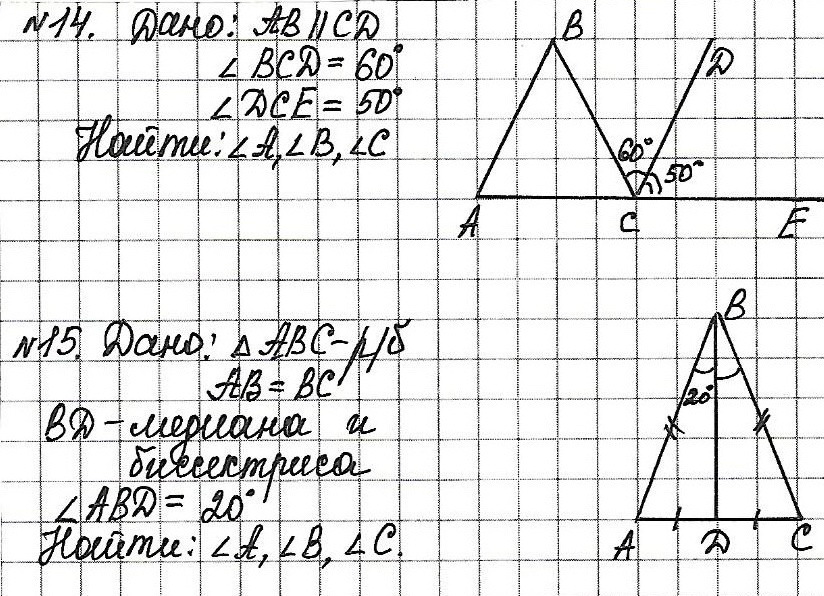 №14. Дано: AB || CD
∠ BCD = 60°
∠ DCE = 50°
Найти: ∠A, ∠B, ∠C
B
D
60°
50°
A
C
E
№15. Дано: △ ABC - р/б
AB = BC
BD - медиана и
биссектриса
∠ ABD = 20°
Найти: ∠A, ∠B, ∠C.
B
20°
A
D
C